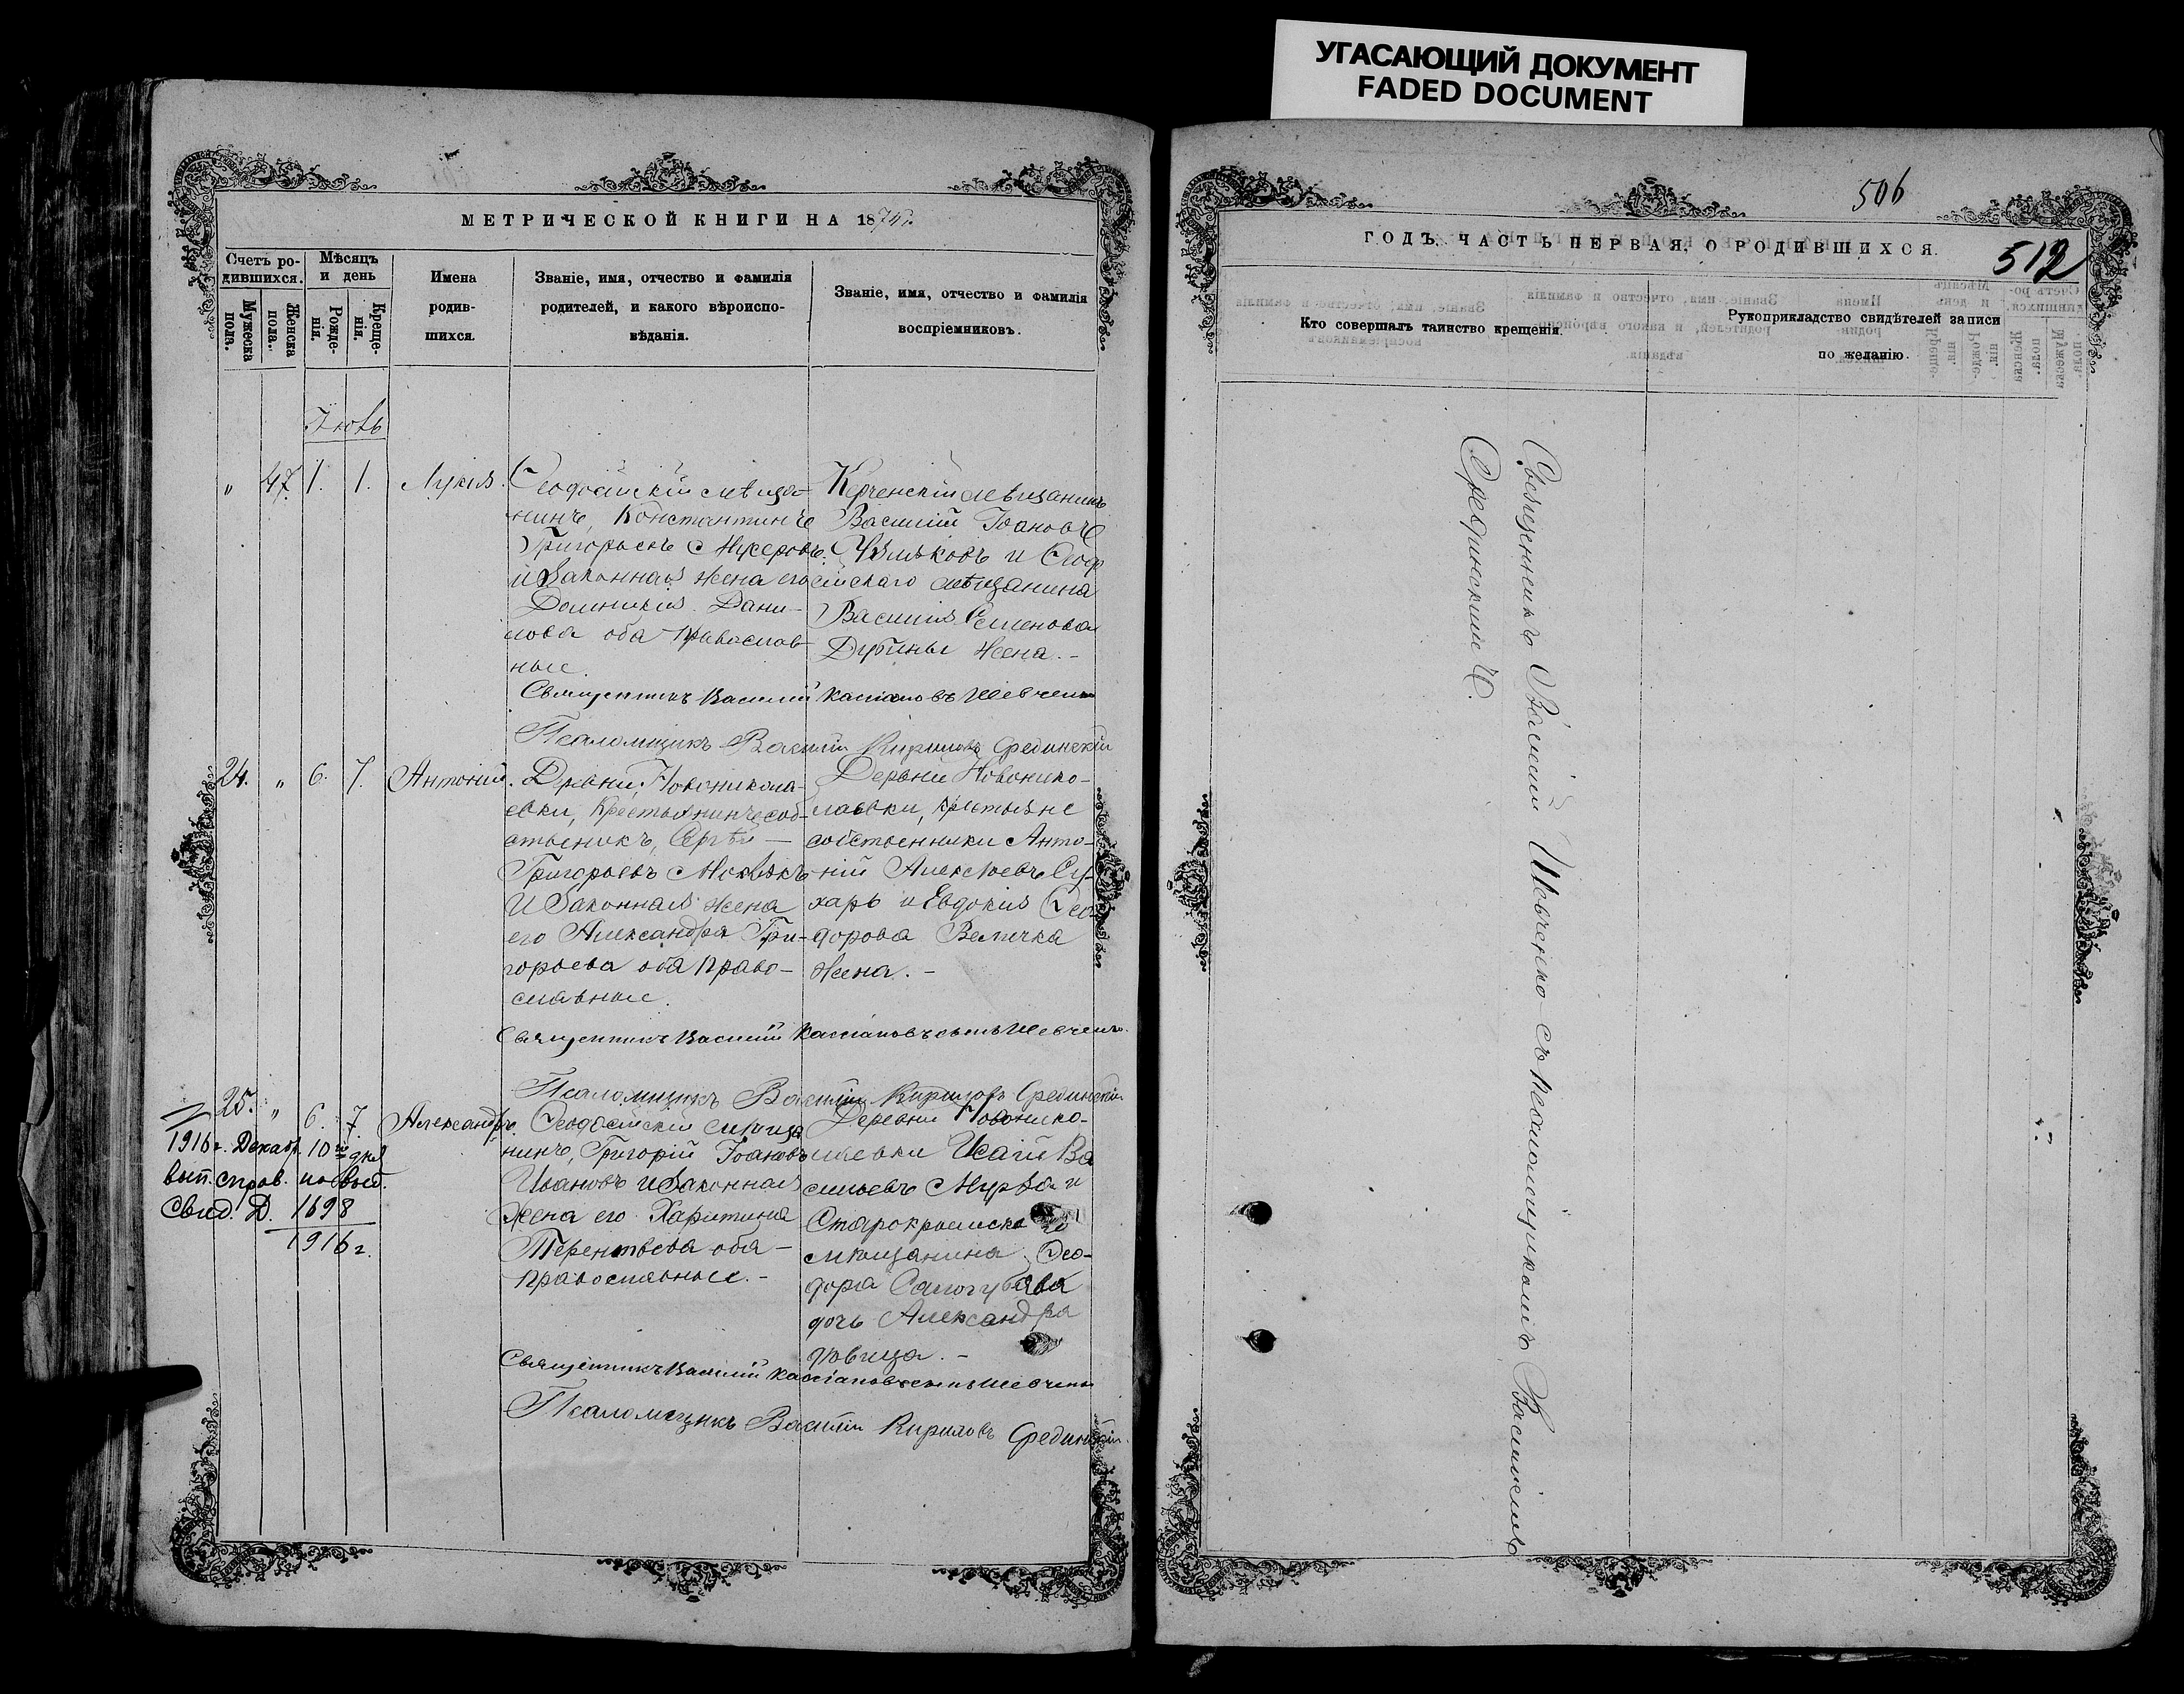 УГАСАЮЩИЙ ДОКУМЕНТ
FADED DOCUMENT
МЕТРИЧЕСКОЙ КНИГИ НА 1874
Счетъ ро-
дившихся.
Мужеска
пола.
Женска
пола.
Мѣсяцъ
и день
Рожде-
нія.
Креще-
нія.
Имена
родив-
шихся.
Званіе, имя, отчество и фамилія
родителей, и какого вѣроиспо-
вѣданія.
Званіе, имя, отчество и фамилія
воспріемниковъ.
" 47. 1. 1. Лукія.
Ѳеодосійскій мѣща-
нинъ, Константинъ
Григорьевъ
и законная жена его
Домникія Дани-
лова оба православ-
ные.
Керченскій мѣщанинъ
Василій Іоановъ
и Ѳеодо
сійскаго мѣщанина
Василія Семенова
Дубины жена. -
Священникъ Василій Кассіановъ Шевченко
Псаломщикъ Василій Кириловъ Срединскій
24. " 6. 7. Антоній.
Деревни Новоникола-
евки, крестьянинъ соб-
ственикъ, Сергѣй -
Григорьевъ
и законная жена
его Александра Гри-
горьева оба право-
славные.
Деревни Новонико-
лаевки, крестьяне
собственники Анто-
ній Алексѣевъ Су-
харь и Евдокія Ѳео-
дорова Величка
жена. -
Священникъ Василій Кассіановъ сынъ Шевченко
Псаломщикъ Василій Кириловъ Срединскій
25. " 6. 7. Александръ.
Ѳеодосійскій мѣща
нинъ, Григорій Іоановъ
Ивановъ и законная
жена его Харитина
Терентьева оба -
православные. -
Деревни Новонико-
лаевки Исаій Ва
сильевъ Мурза и
Старокрымскаго
мѣщанина Ѳео-
дора
дочь Александра
дѣвица. -
1916 г. Декабр. 10 го дня
вып. справ.
свид. Д. 1698
1916 г.
Священникъ Василій Кассіановъ сынъ Шевченко
Псаломщикъ Василій Кириловъ Срединскій
506
512
ГОДЪ, ЧАСТЬ ПЕРВАЯ, О РОДИВШИХСЯ.
Кто совершалъ таинство крещенія.
Рукоприкладство свидѣтелей записи
по желанію.
Священникъ Василій Шевченко съ псаломщикомъ Василіемъ
Срединскимъ.